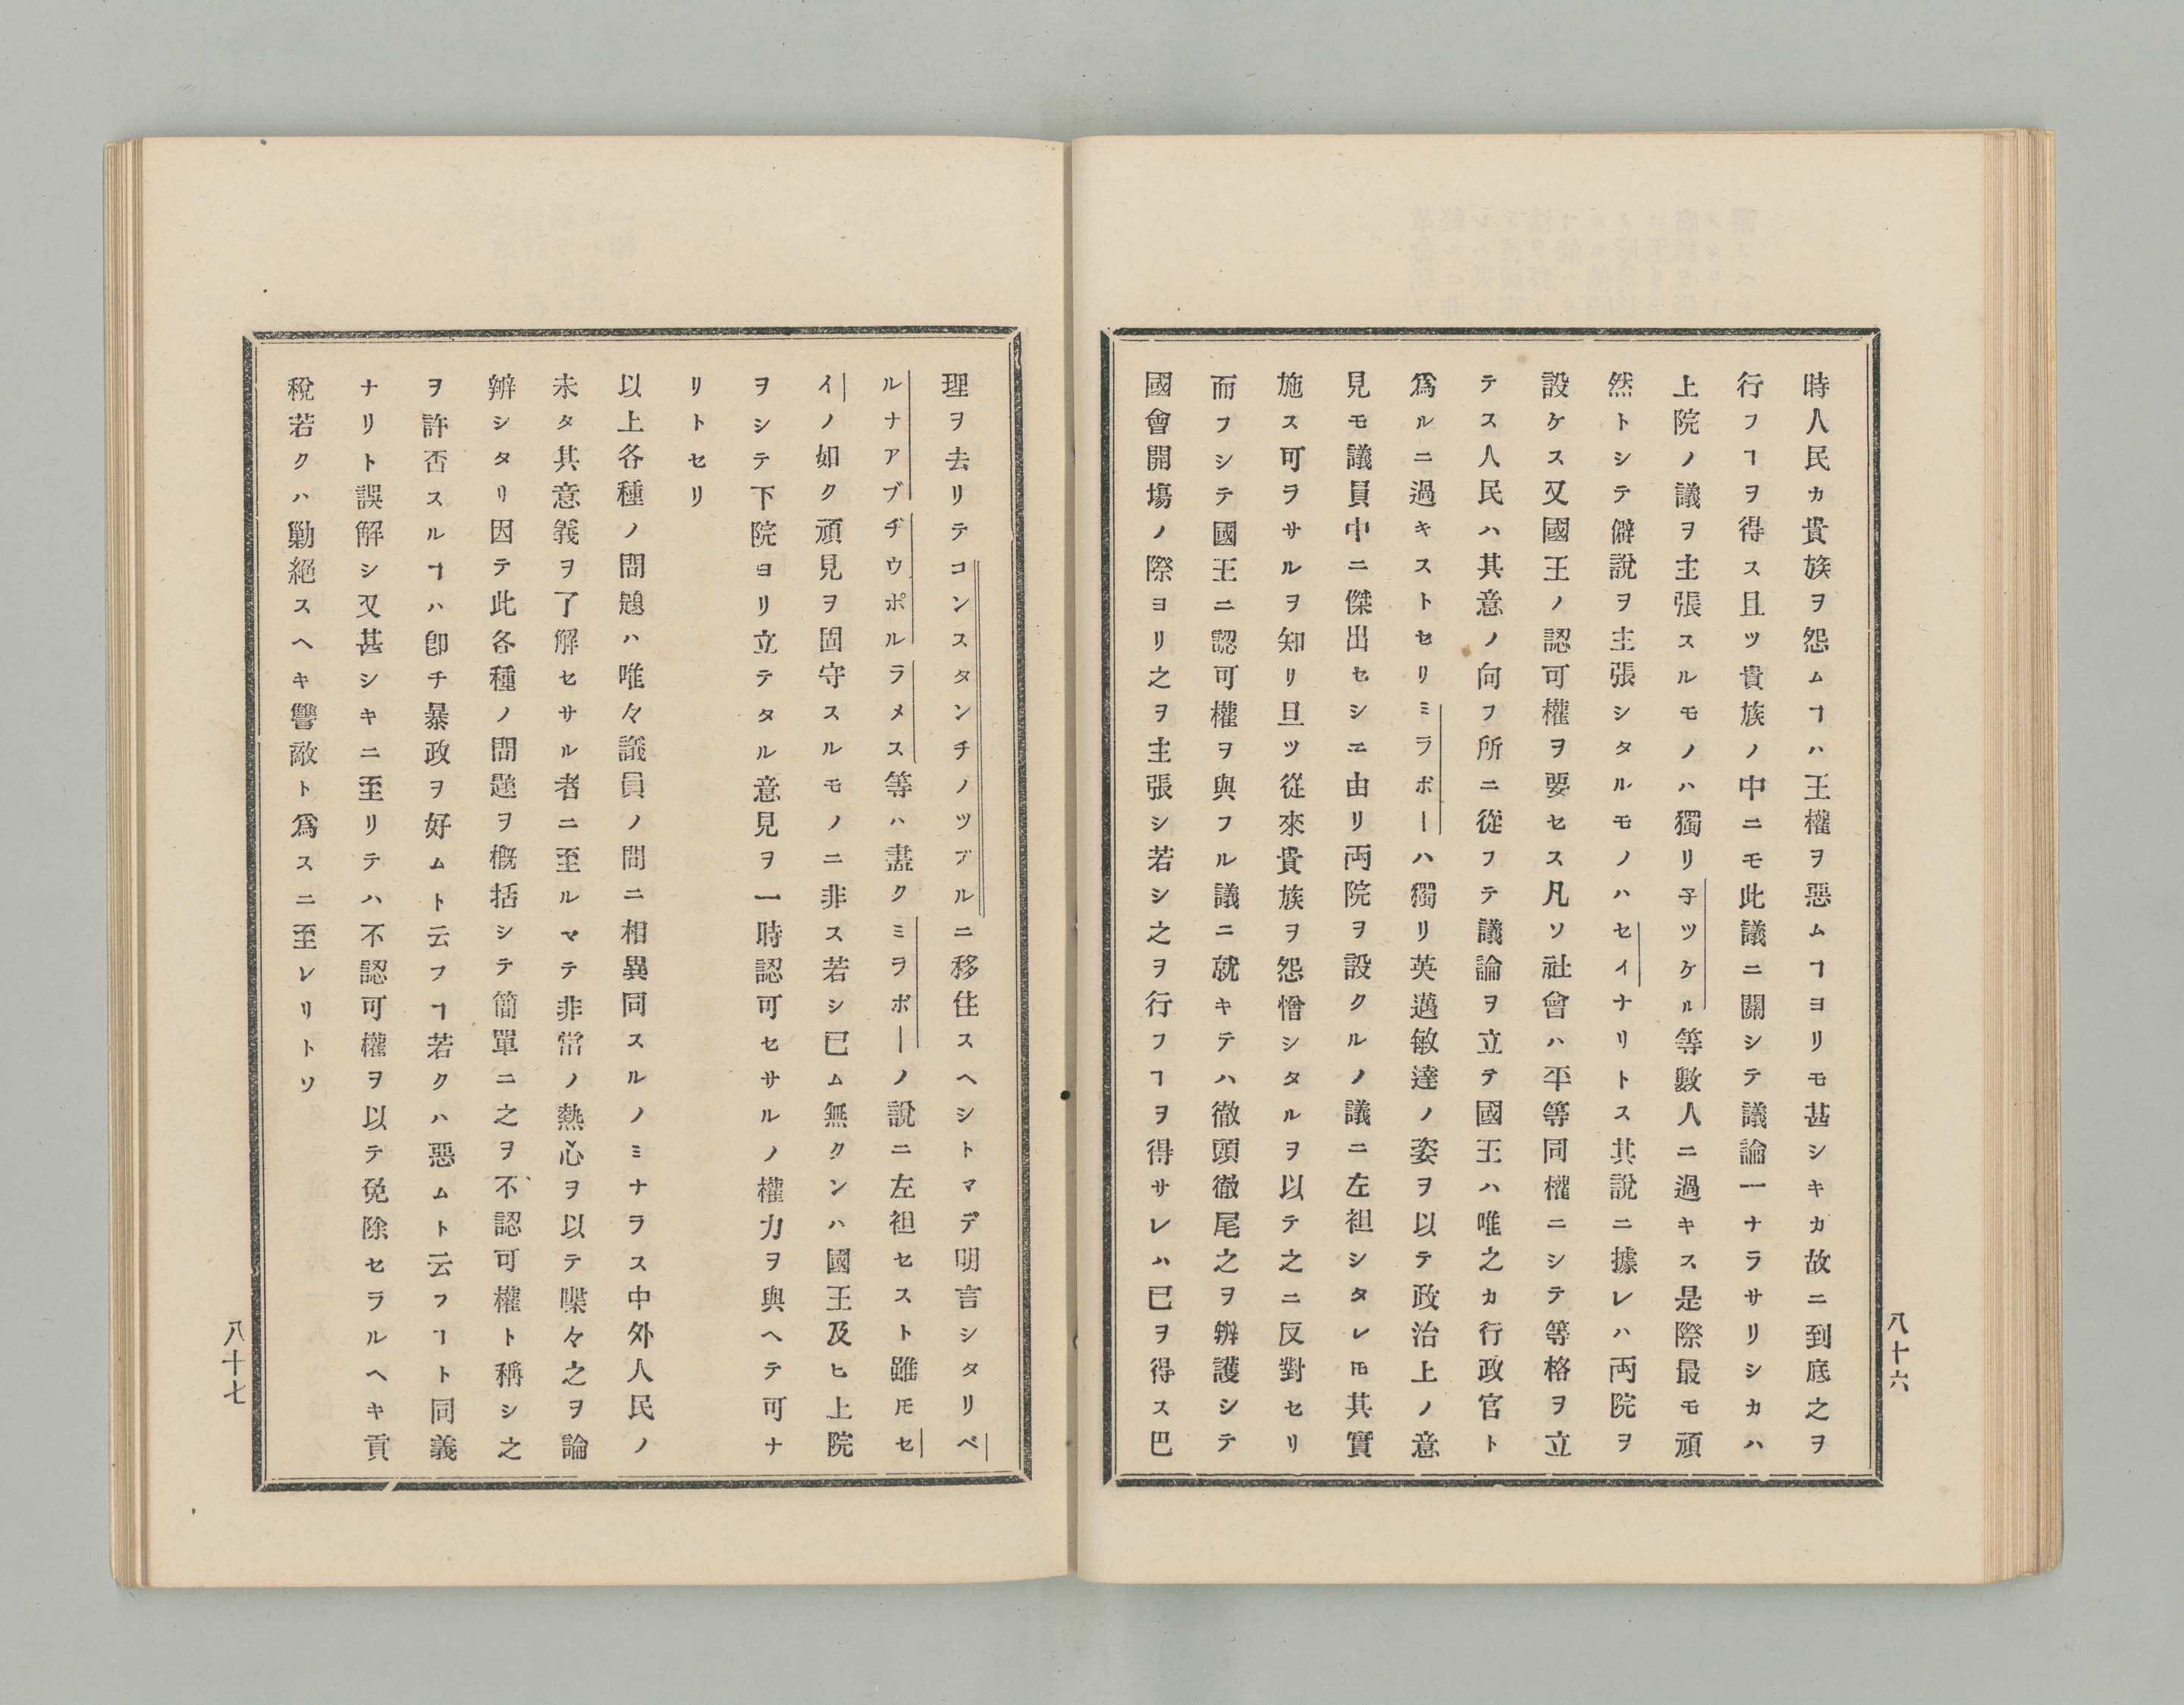 時人民カ貴族ヲ怨ムヿハ王權ヲ惡ムヿヨリモ甚シキカ故ニ到底之ヲ
行フヿヲ得ス且ツ貴族ノ中ニモ此議ニ關シテ議論一ナラサリシカハ
上院ノ議ヲ主張スルモノハ獨リ子ツケル等數人ニ過キス是際最モ頑
然トシテ僻說ヲ主張シタルモノハセイナリトス其說ニ據レハ両院ヲ
設ケス又國王ノ認可權ヲ要セス凡ソ社會ハ平等同權ニシテ等格ヲ立
テス人民ハ其意ノ向フ所ニ從フテ議論ヲ立テ國王ハ唯之カ行政官ト
爲ルニ過キストセリミラボーハ獨リ英邁敏達ノ姿ヲ以テ政治上ノ意
見モ議員中ニ傑出セシヱ由リ両院ヲ設クルノ議ニ左袒シタレ𪜈其實
施ス可ラサルヲ知リ旦ツ從來貴族ヲ怨憎シタルヲ以テ之ニ反對セリ
而フシテ國王ニ認可權ヲ與フル議ニ就キテハ徹頭徹尾之ヲ辨護シテ
國會開塲ノ際ヨリ之ヲ主張シ若シ之ヲ行フヿヲ得サレハ已ヲ得ス巴
八十六
理ヲ去リテコンスタンチノツブルニ移住スヘシトマデ明言シタリベ
ルナアブヂウポルラメス等ハ盡クミラボーノ說ニ左袒セスト雖𪜈セ
イノ如ク頑見ヲ固守スルモノニ非ス若シ已ム無クンハ國王及ヒ上院
ヲシテ下院ヨリ立テタル意見ヲ一時認可セサルノ權力ヲ與ヘテ可ナ
リトセリ
以上各種ノ問題ハ唯々議員ノ間ニ相異同スルノミナラス中外人民ノ
未タ其意義ヲ了解セサル者ニ至ルマテ非常ノ熱心ヲ以テ喋々之ヲ論
辨シタリ因テ此各種ノ問題ヲ概括シテ簡單ニ之ヲ不認可權ト稱シ之
ヲ許否スルヿハ卽チ暴政ヲ好ムト云フヿ若クハ惡ムト云フヿト同義
ナリト誤解シ又甚シキニ至リテハ不認可權ヲ以テ免除セラルヘキ貢
稅若クハ勦絕スヘキ讐敵ト爲スニ至レリトソ
八十七